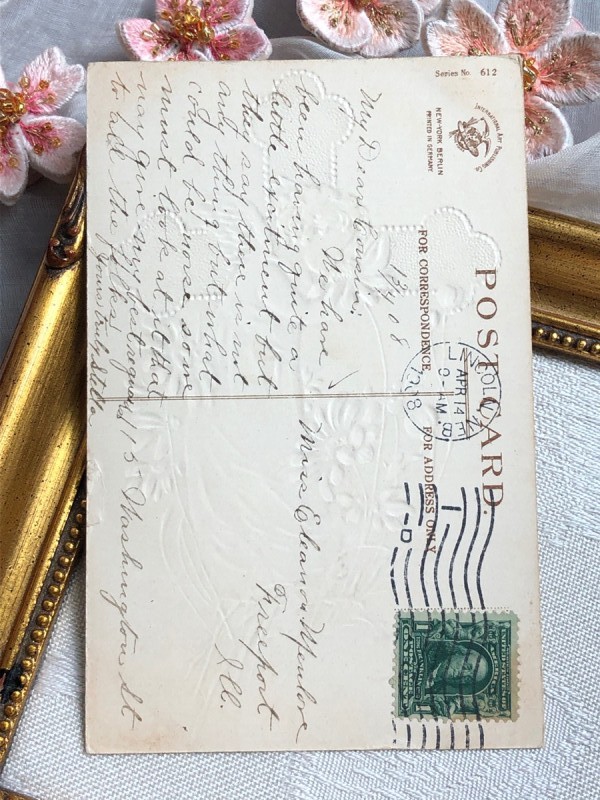 Series No. 612
POST CARD.
INTERNATIONAL ART PUBLISHING CO.
NEW-YORK BERLIN
PRINTED IN GERMANY
FOR CORRESPONDENCE
FOR ADDRESS ONLY
LINCOLN
APR 14
9-AM
1908
My Dear Cousin:
We have
been having quite a
little excitment but
they say there is not
any thing but what
could be worse some
must look at it that
way. Give my best regards
to all the folks.
Yours truly Stella
Miss Eleanor
Freeport
Ill.
115 Washington St